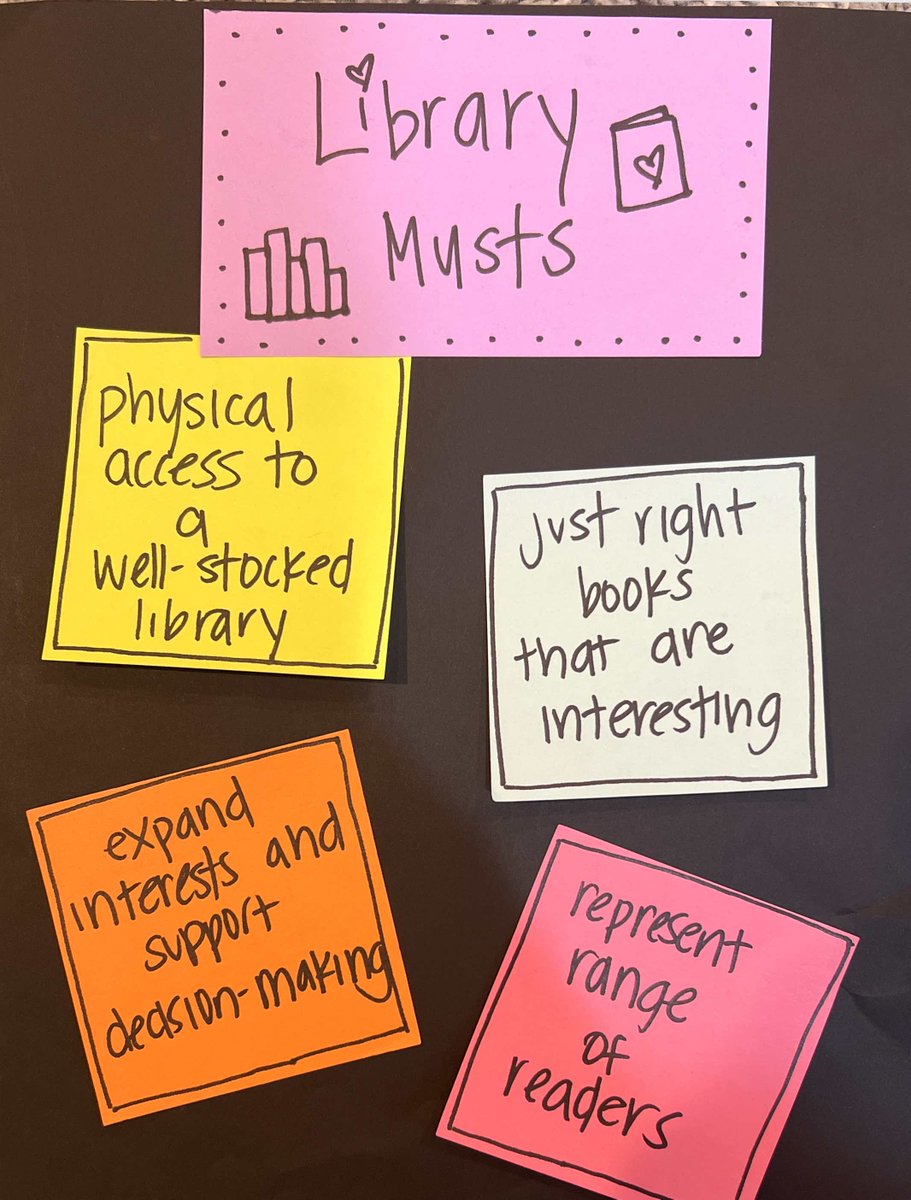 Library
Musts
physical
access to
a
well-stocked
library
just right
books
that are
interesting
expand
interests and
support
decision-making
represent
range
of
readers